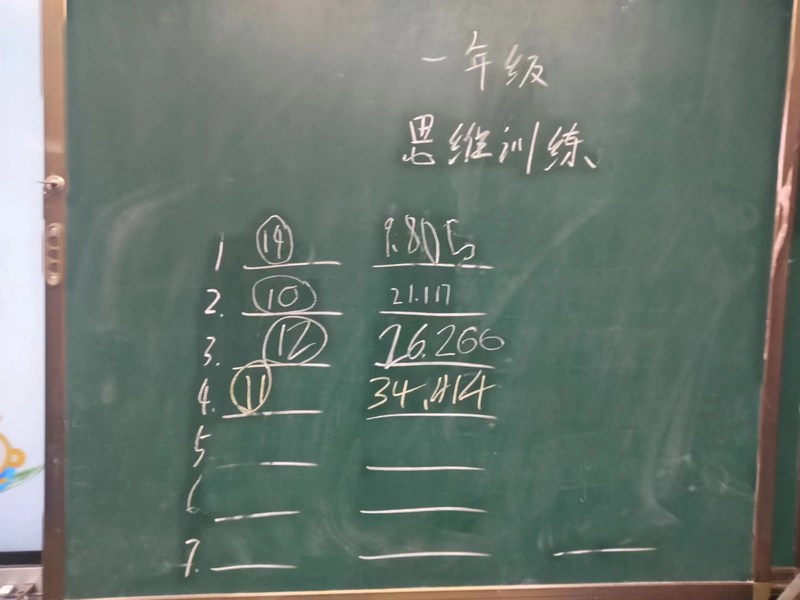 一年级
思维训练
1 ⑭ 9.805
2. ⑩ 21.117
3. ⑫ 26.266
4. ⑪ 34.414
5
6
7.